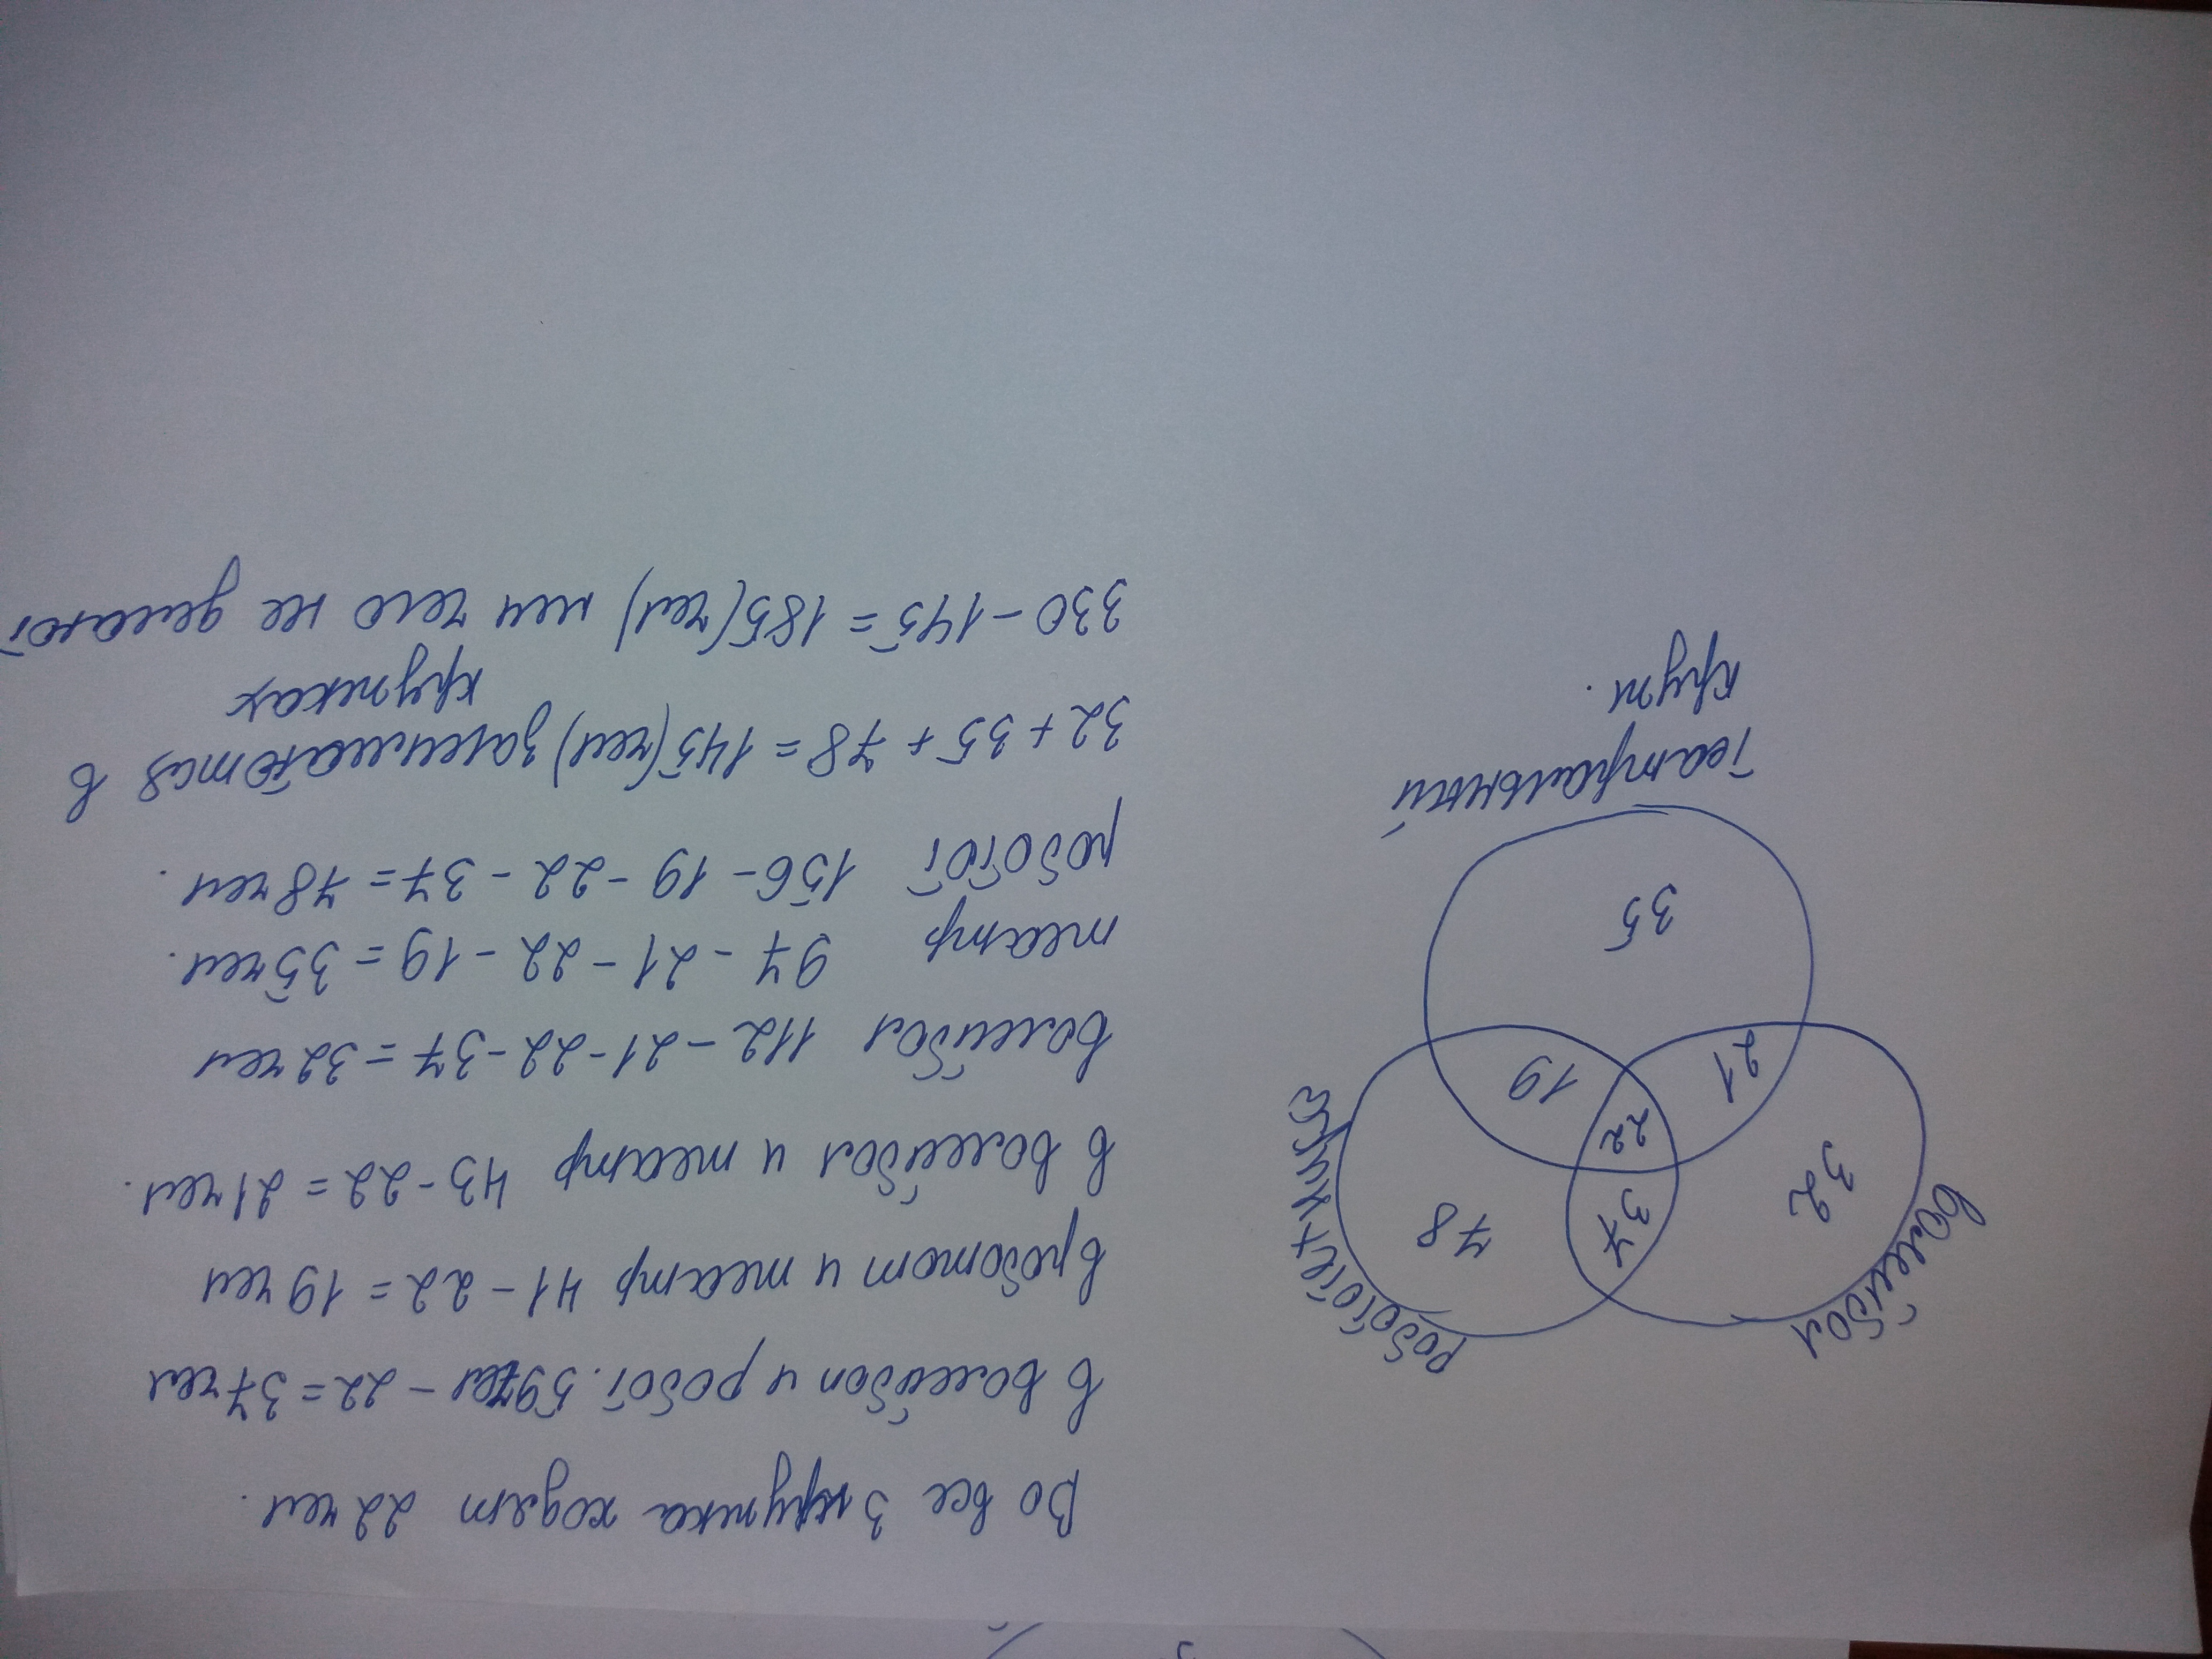 Во все 3 кружка ходят 22 чел.
В волейбол и робот. 59чел - 22 = 37 чел
В робот и театр 41 - 22 = 19 чел
В волейбол и театр 43 - 22 = 21 чел.
волейбол 112 - 21 - 22 - 37 = 32 чел
театр 97 - 21 - 22 - 19 = 35 чел.
робот 156 - 19 - 22 - 37 = 78 чел.
32 + 35 + 78 = 145 (чел) занимаются в
кружках
330 - 145 = 185 (чел) не делают
волейбол
робототехника
32
37
78
22
21
19
35
Театральный
круж.